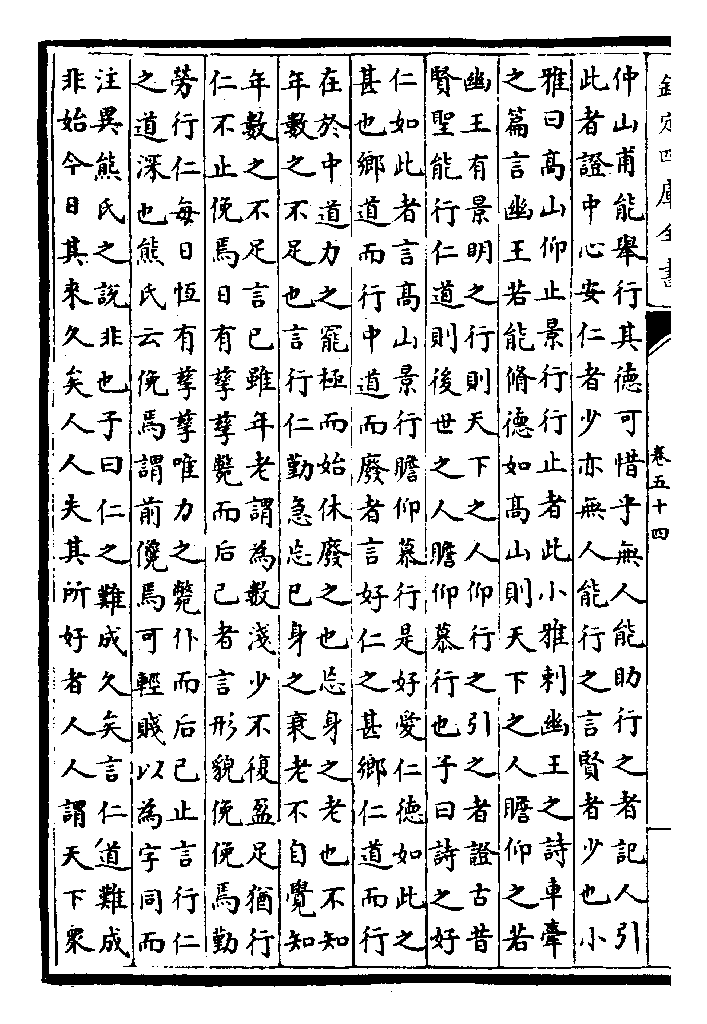 欽定四庫全書
卷五十四
仲山甫能舉行其德可惜乎無人能助行之者記人引
此者證中心安仁者少亦無人能行之言賢者少也小
雅曰高山仰止景行行止者此小雅刺幽王之詩車牽
之篇言幽王若能脩德如高山則天下之人瞻仰之若
幽王有景明之行則天下之人仰行之引之者證古昔
賢聖能行仁道則後世之人瞻仰慕行也子曰詩之好
仁如此者言高山景行瞻仰慕行是好愛仁德如此之
甚也鄉道而行中道而廢者言好仁之甚鄉仁道而行
在於中道力之罷極而始休廢之也忘身之老也不知
年數之不足也言行仁勤急忘已身之衰老不自覺知
年數之不足言已雖年老謂為數淺少不復盈足猶行
仁不止俛焉日有孳孳斃而后已者言形貌俛俛焉勤
勞行仁每日恆有孳孳唯力之斃仆而后已止言行仁
之道深也熊氏云俛焉謂前儳焉可輕賤以為字同而
注異熊氏之說非也子曰仁之難成久矣言仁道難成
非始今日其來久矣人人失其所好者人人謂天下眾